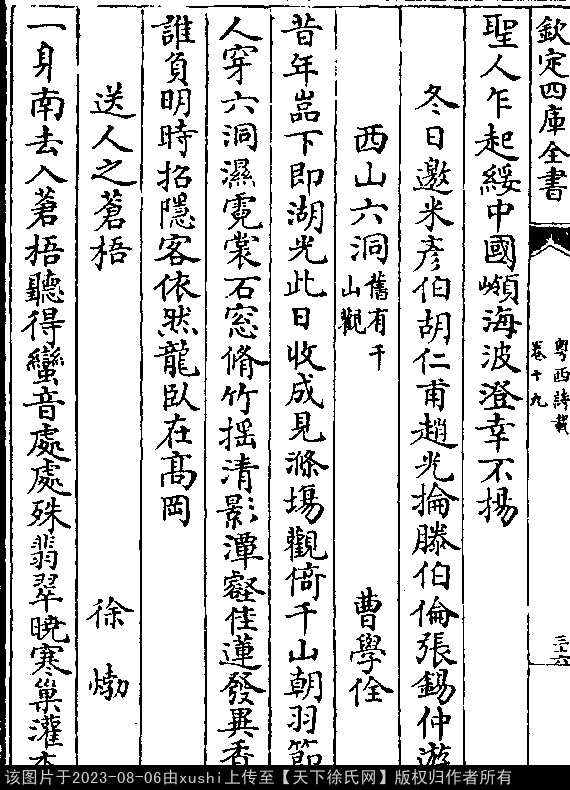 欽定四庫全書
粵西詩載
卷十九
三六
聖人乍起綏中國嶺海波澄幸不揚
冬日邀米彥伯胡仁甫趙光掄滕伯倫張錫仲游
西山六洞舊有千山觀 曹學佺
昔年嵓下即湖光此日收成見滌場觀倚千山朝羽節
人穿六洞濕霓裳石窓脩竹揺清影潭壑佳蓮發異香
誰負明時招隱客依然龍臥在髙岡
送人之蒼梧 徐㶿
一身南去入蒼梧聽得蠻音處處殊翡翠曉寒巢灌木
该图片于2023-08-06由xushi上传至【天下徐氏网】版权归作者所有